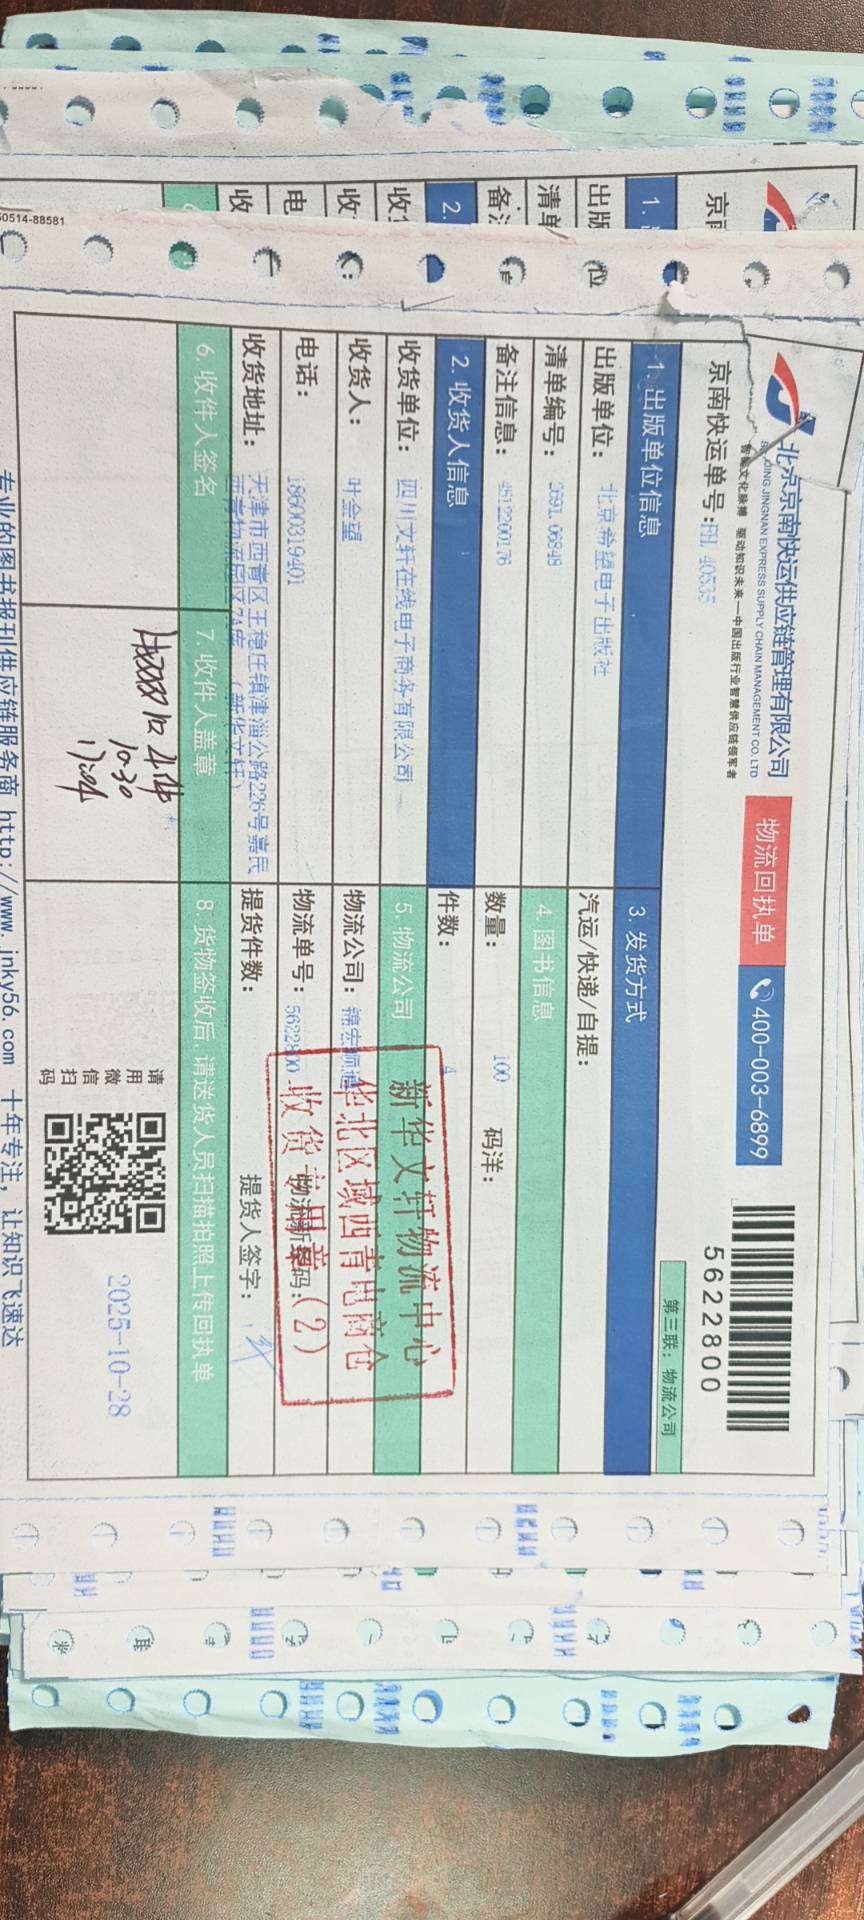 北京京南快运供应链管理有限公司
BEIJING JINGNAN EXPRESS SUPPLY CHAIN MANAGEMENT CO. LTD
智能文化脉搏 驱动知识未来—中国出版行业智慧供应链领军者
物流回执单
400-003-6899
5622800
京南快运单号:
第三联:物流公司
1. 出版单位信息
出版单位: 北京希望电子出版社
清单编号:
备注信息:
2. 收货人信息
收货单位: 四川文轩在线电子商务有限公司
收货人: 叶金望
电话: 18600319401
收货地址: 天津市西青区王稳庄镇津淄公路226号嘉民
西青物流园区2A库 (新华文轩)
3. 发货方式
汽运/快递/自提:
4. 图书信息
数量: 100 码洋:
件数: 4
5. 物流公司
物流公司:
物流单号: 5622800
提货件数: 提货人签字:
新华文轩物流中心
华北区域西青电商仓
收货专用章(2)
6. 收件人签名
7. 收件人盖章
8. 货物签收后,请送货人员扫描拍照上传回执单
10.30
请用微信扫码
2025-10-28
专业的图书报刊供应链服务商 http://www.jnky56.com 十年专注,让知识飞速达
50514-88581
京南
1.
出版
清单
备注
2.
收货
收
电
收